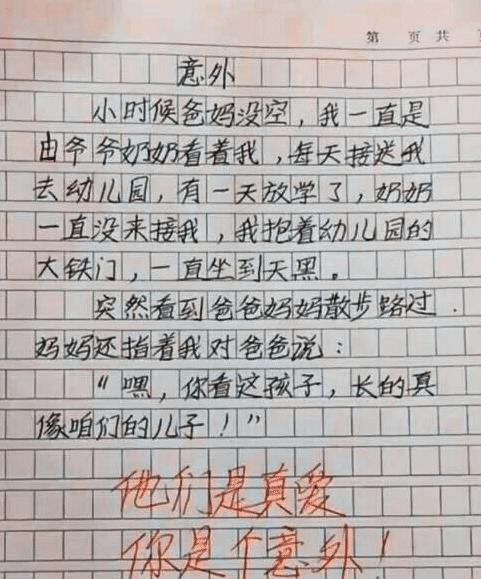 第 页 共
意外
小时候爸妈没空，我一直是
由爷爷奶奶看着我，每天接送我
去幼儿园，有一天放学了，奶奶
一直没来接我，我抱着幼儿园的
大铁门，一直坐到天黑。
突然看到爸爸妈妈散步路过．
妈妈还指着我对爸爸说：
“嘿，你看这孩子，长的真
像咱们的儿子！”
他们是真爱
你是个意外！